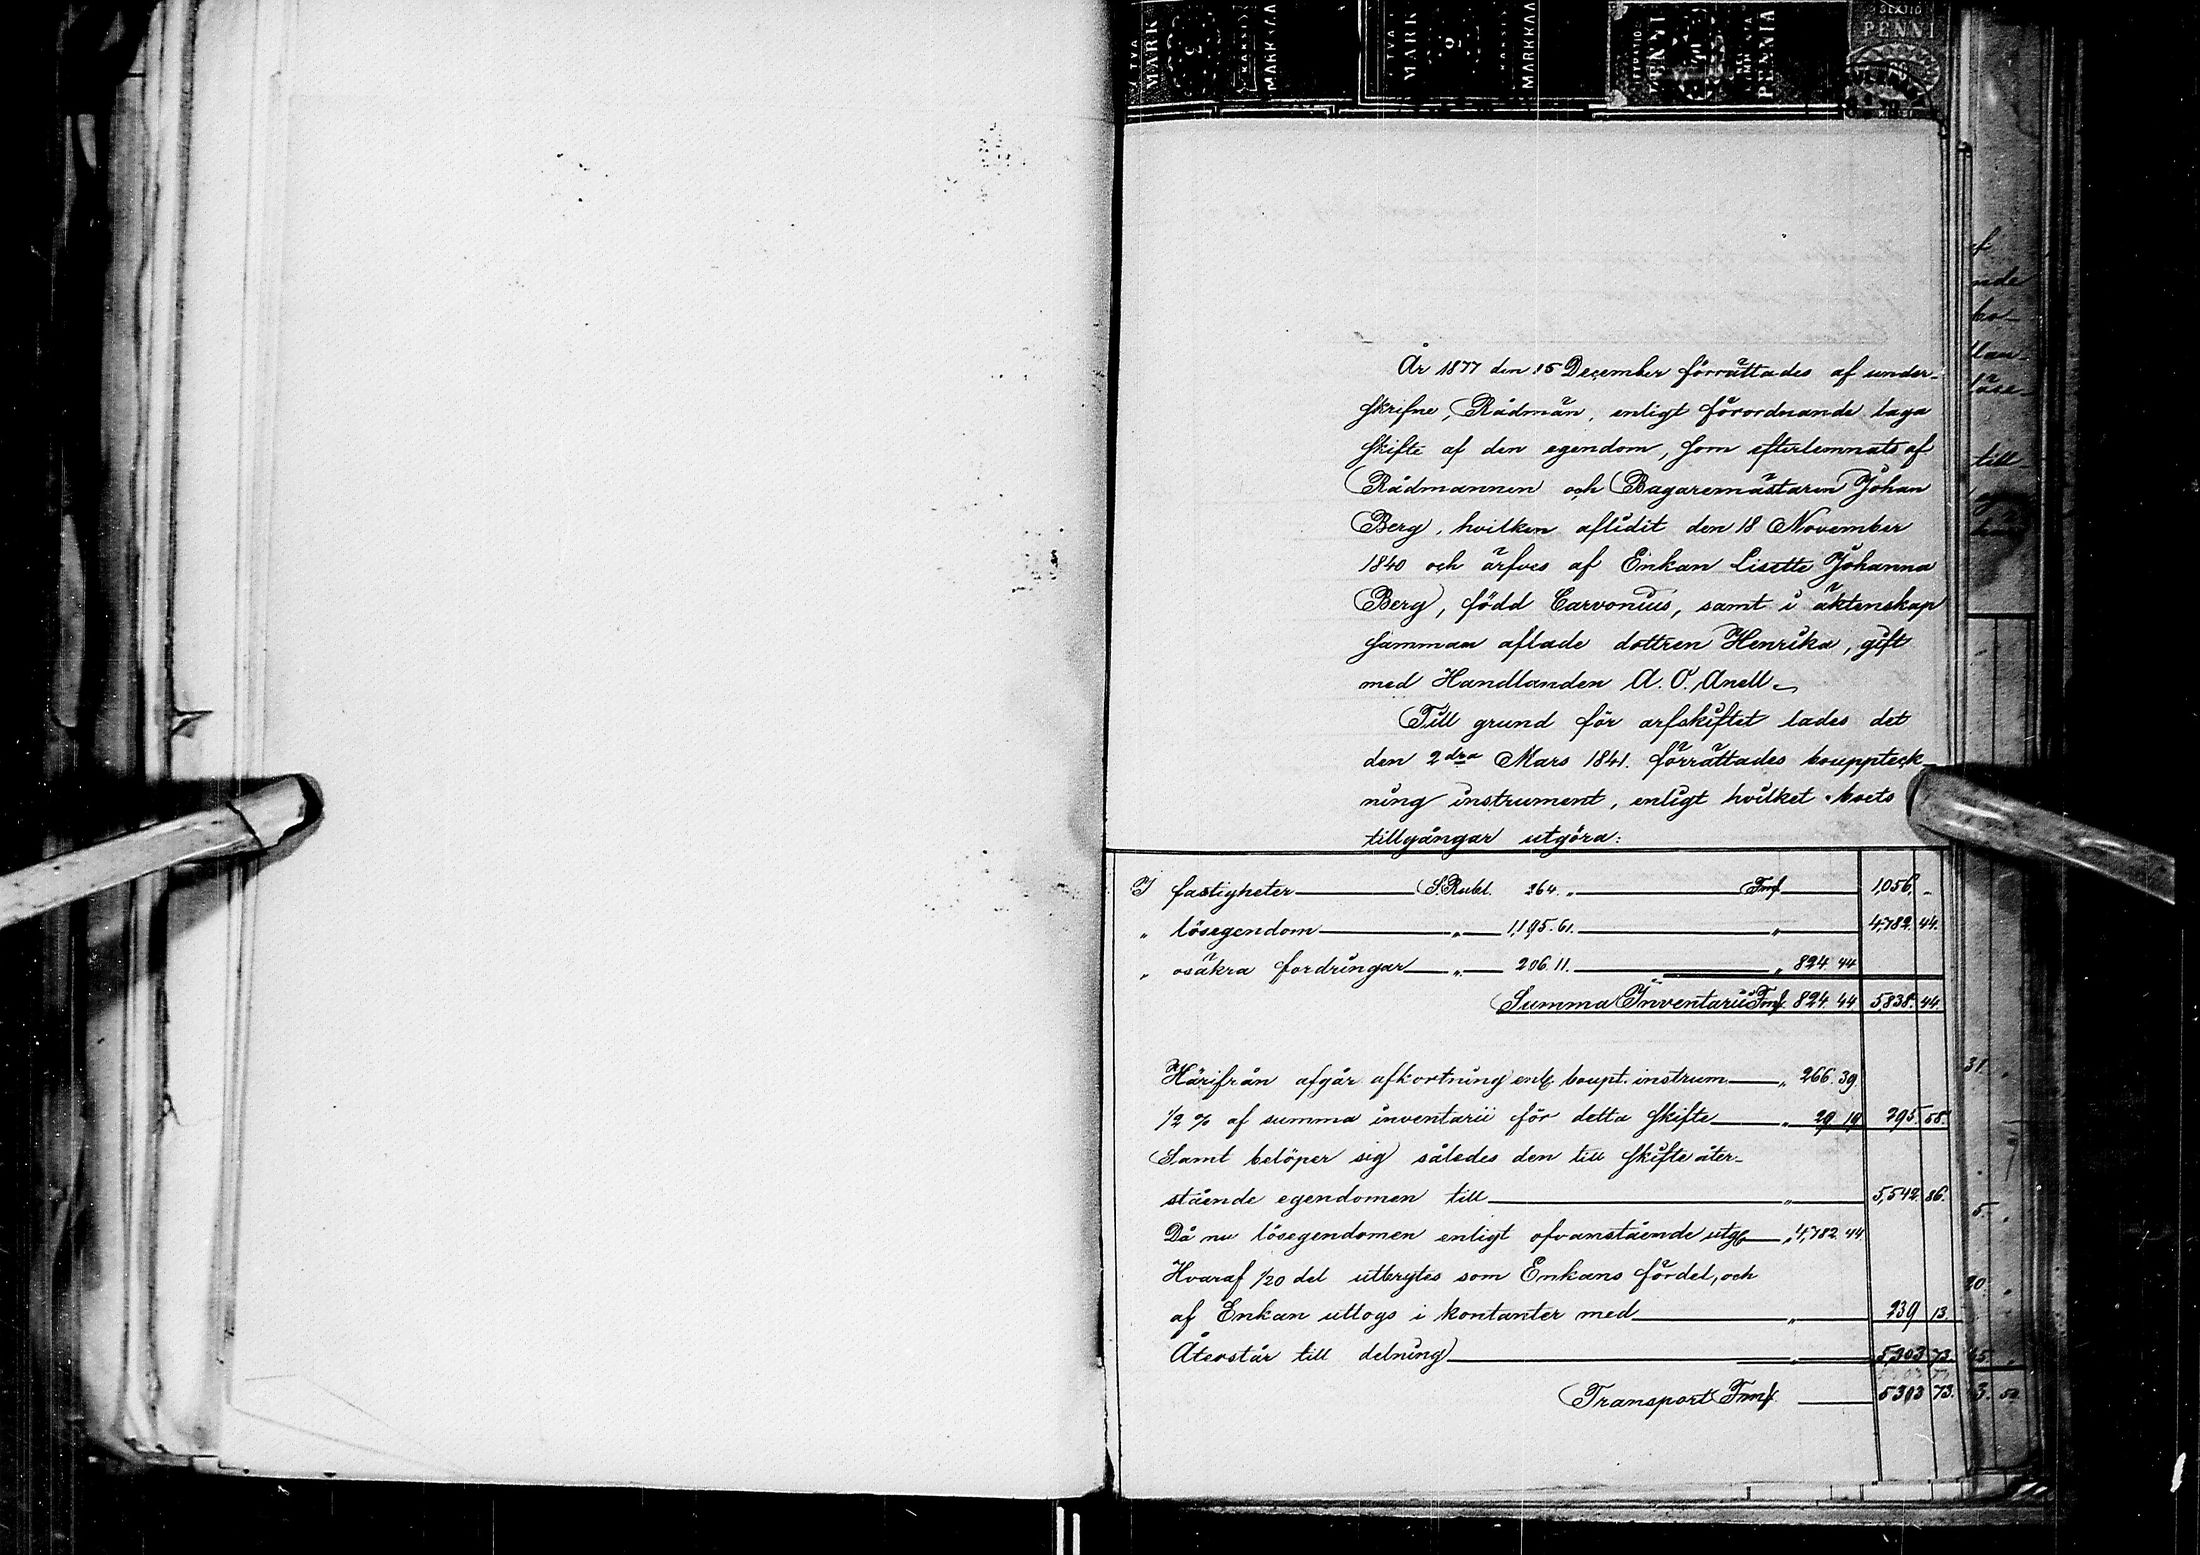 TVÅ
MARK
KAKSI
MARKKAA
TVÅ
MARK
KAKSI
MARKKAA
PENNI
PENNIÄ
SEXTIO
PENNI
År 1877 den 15 December förrättades af under-
skrifne, Rådmän, enligt förordnande laga
skifte af den egendom, som efterlemnats af
Rådmannen och Bagaremästaren Johan
Berg, hvilken aflidit den 18 November
1840 och ärfves af Enkan Lisette Johanna
Berg, född Carvonius, samt i äktenskap
samman aflade dottren Henrika, gift
med Handlanden A. O. Anell.
Till grund för arfskiftet lades det
den 2dra Mars 1841. förrättades bouppteck-
ning instrument, enligt hvilket boets
tillgångar utgöra:
I fastigheter S.Rubl. 264. „ Fmk 1,056. „
„ lösegendom „ 1,195. 61. „ 4,782. 44.
„ osäkra fordringar „ 206. 11. „ 824. 44
Summa Inventarii Fmk 824. 44 5,838. 44.
Härifrån afgår afkortning enl. boupt. instrum „ 266. 39.
1/2 % af summa inventarii för detta skifte „ 29. 19 295. 58.
Samt belöper sig således den till skifte åter-
stående egendomen till „ 5,542. 86.
Då nu lösegendomen enligt ofvanstående utgör „ 4,782. 44.
Hvaraf 1/20 del utbrytes som Enkans fördel, och
af Enkan uttogs i kontanter med „ 239 13.
Återstår till delning „ 5,303 73.
Transport Fmk 5303 73.